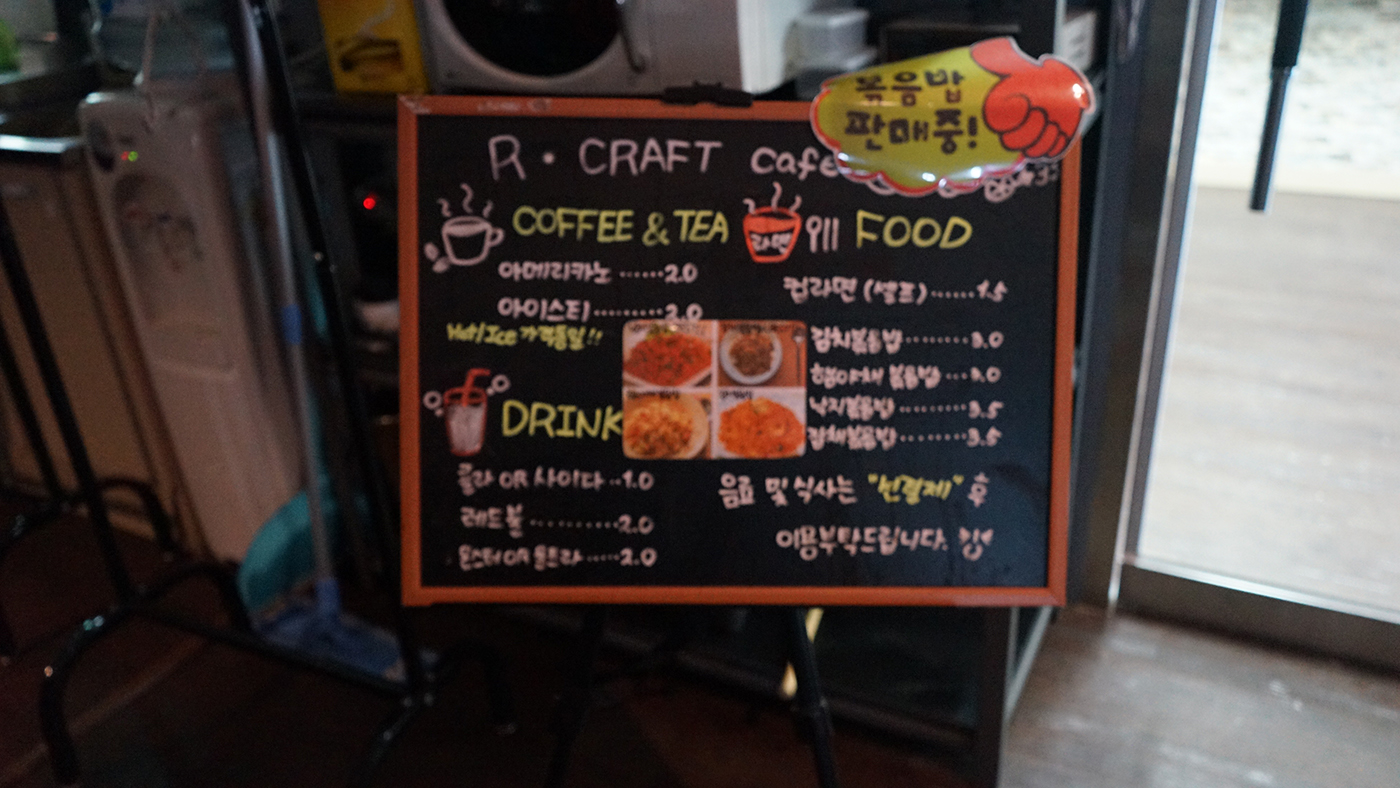 볶음밥
판매중!
R · CRAFT cafe
COFFEE & TEA
아메리카노 ······2.0
아이스티·········2.0
Hot/Ice 가격동일!!
DRINK
콜라 OR 사이다··1.0
레드불··········2.0
몬스터 OR 울트라·····2.0
라면
FOOD
컵라면 (셀프)······1.5
김치볶음밥········3.0
햄야채 볶음밥···3.0
낙지볶음밥·········3.5
잡채볶음밥·······3.5
음료 및 식사는 "선결제" 후
이용부탁드립니다.